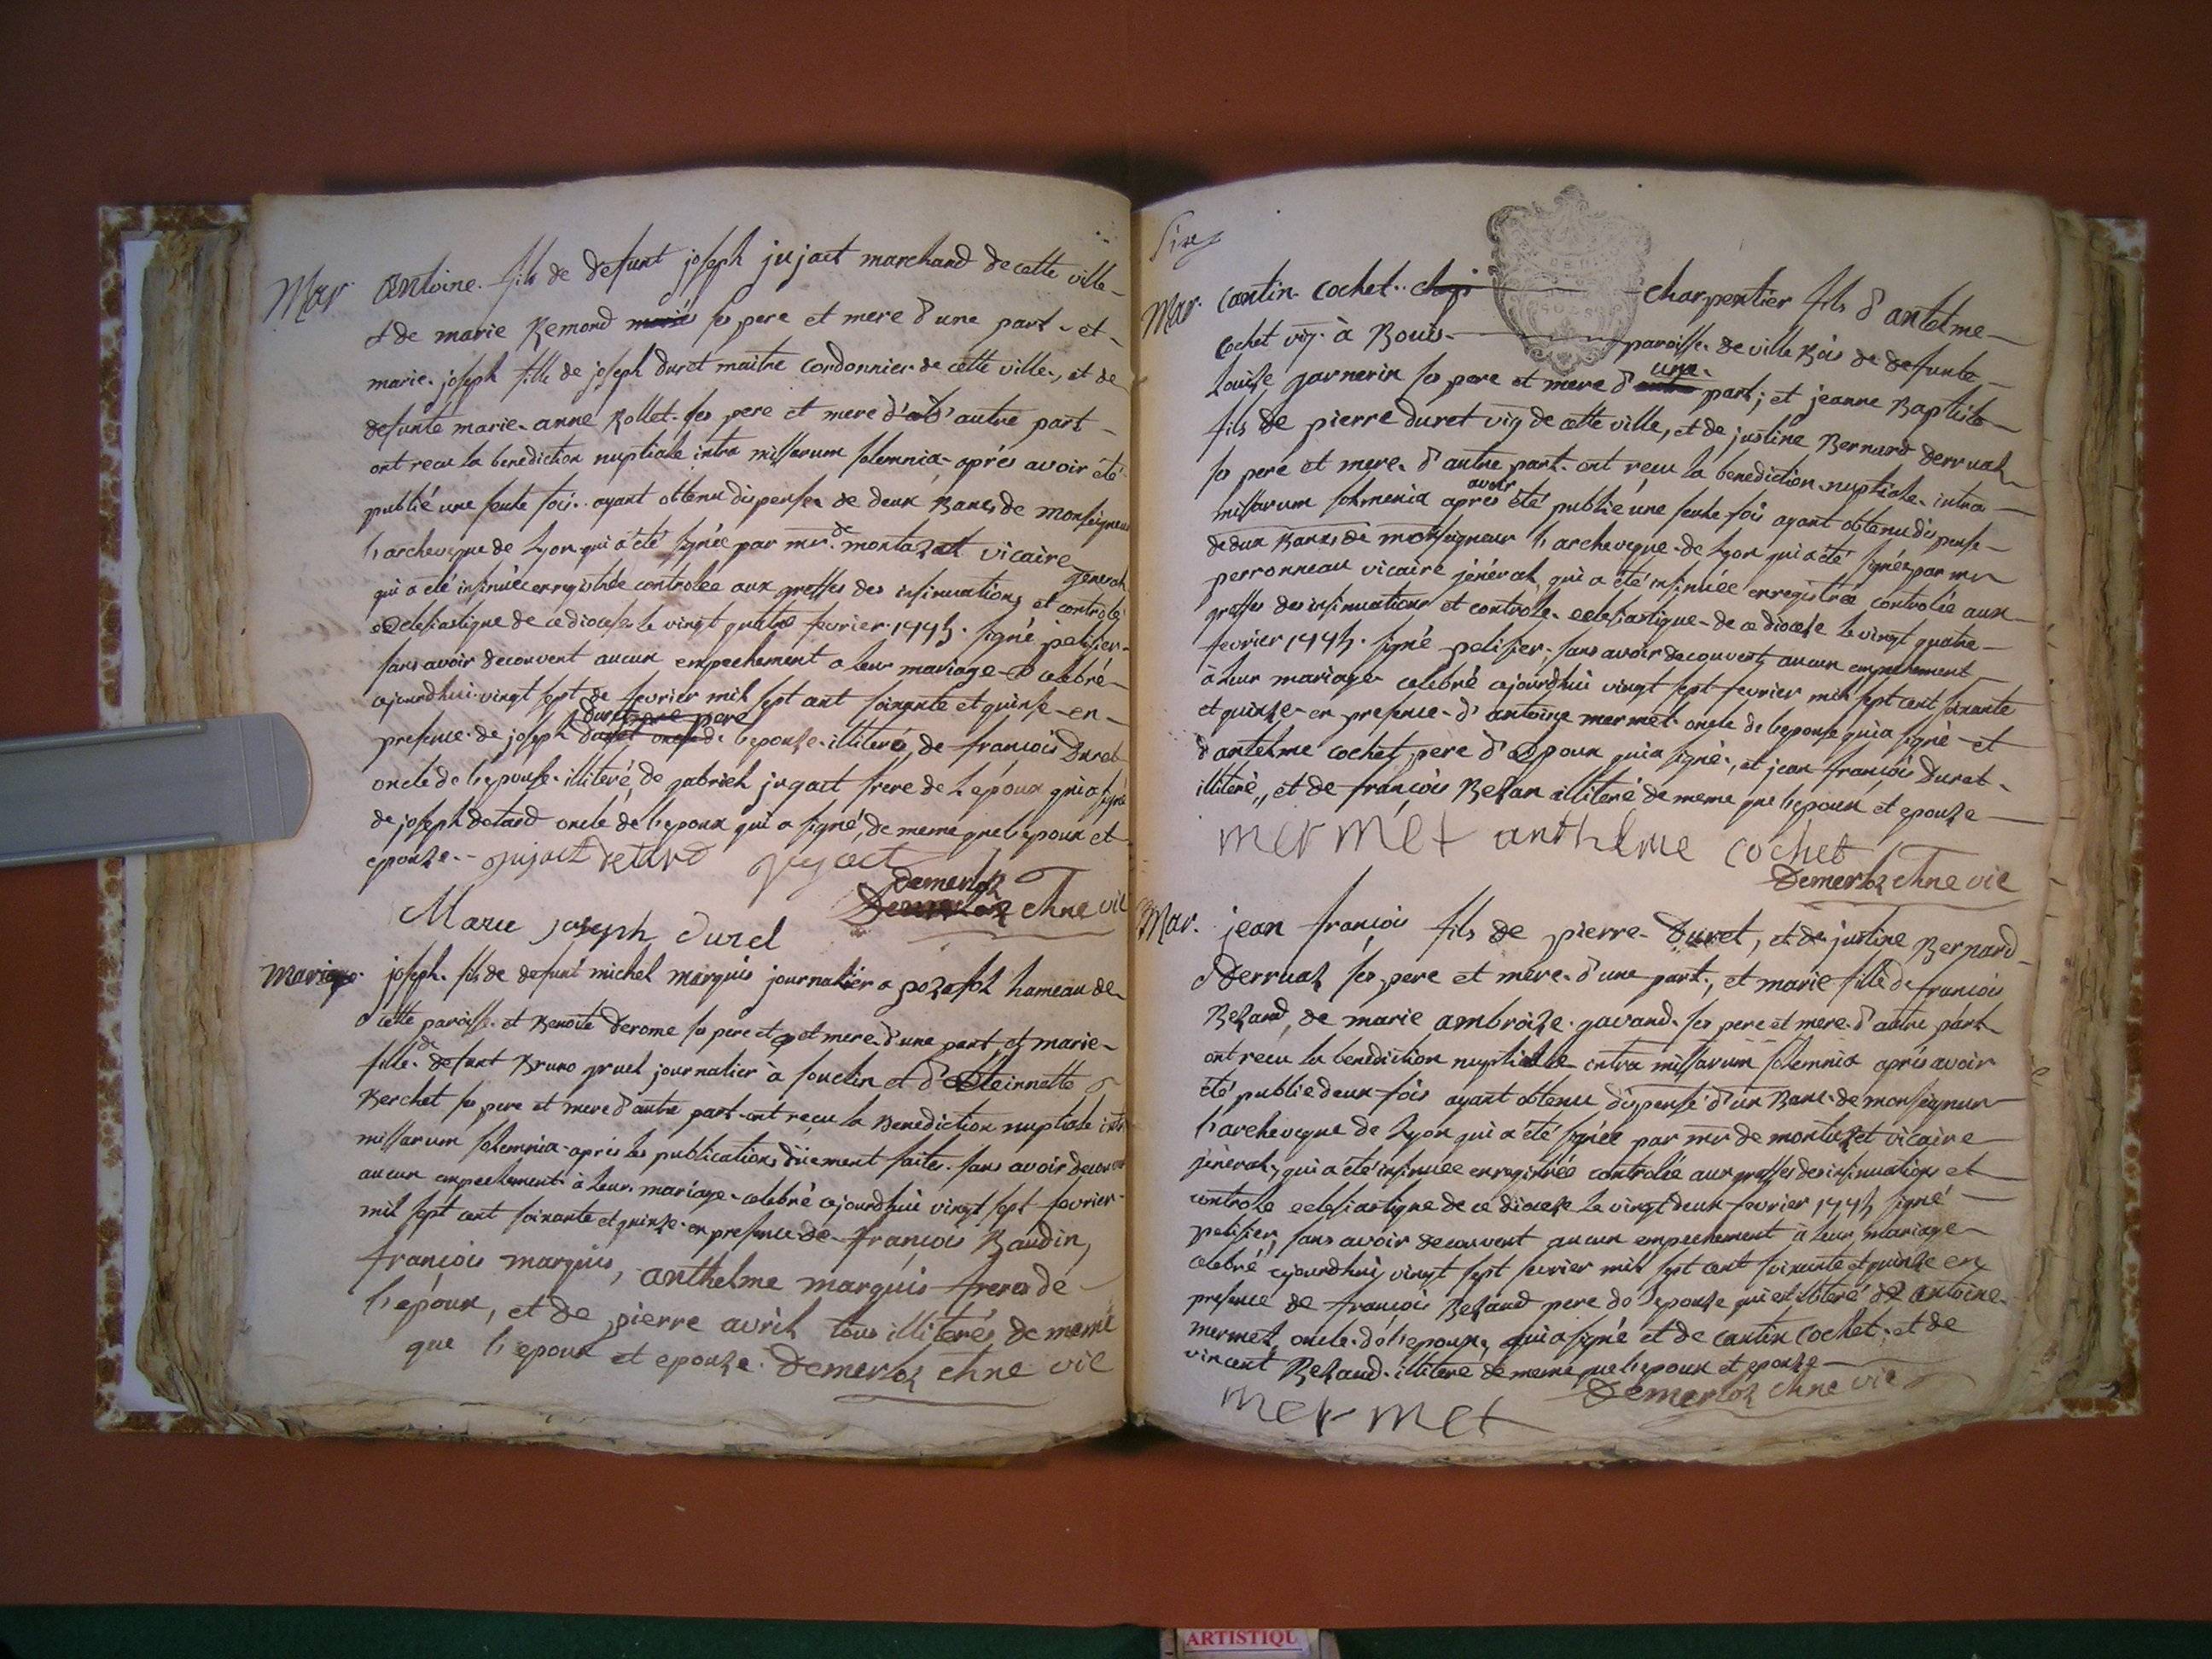 Mar Antoine fils de defunt joseph jujact marchand de cette ville
et de marie Remond mariés ses pere et mere d'une part et
marie joseph fille de joseph duret maitre cordonnier de cette ville, et de
defunte marie anne Rollet ses pere et mere d'autre part
ont recu la benediction nuptiale intra missarum solemnia après avoir été
publié une seule fois ayant obtenu dispense de deux Bancs de Monseigneur
l'archeveque de Lyon qui a été signée par mr. de montazet vicaire general
qui a été insinuée enregistrée controlee aux greffes des insinuations et controle
ecclesiastique de ce diocese le vingt quatre fevrier 1775. signé pelissier
sans avoir decouvert aucun empechement a leur mariage celebré
ajourdhui vingt sept de fevrier mil sept cent soixante et quinse en
duret pere
presence de joseph duret oncle de l'epouse illiteré, de francois Duret
oncle de l'epouse illiteré, de gabriel jujact frere de l'epoux qui a signé
de joseph detard oncle de l'epoux qui a signé, de meme que l'epoux et
epouze. jujact detard jujact
demerloz
Demerloz chne vic
Marie joseph duret
Mariage joseph fils de defunt michel marquis journalier a pozafol hameau de
cette paroisse et Benoite derome ses pere et et mere d'une part, et marie
fille de defunt Bruno gruel journalier à souclin et d'Eteinnette
Berchet ses pere et mere d'autre part ont reçu la Benediction nuptiale intra
missarum solemnia après les publications düement faites sans avoir decouvert
aucun empechement à leur mariage celebré ajourdhui vingt sept fevrier
mil sept cent soixante et quinze en presence de françois Baudin,
françois marquis, anthelme marquis freres de
l'epoux, et de pierre avril tous illiterés de meme
que l'epoux et epouze. Demerloz chne vic
Mar. Cantin Cochet charpentier fils d'antelme
Cochet vig. à Bouis paroisse de ville Bois de defunte
Louise garnerin ses pere et mere d'une part; et jeanne Baptiste
fils de pierre duret vig de cette ville, et de justine Bernard derruaz
ses pere et mere d'autre part ont reçu la benediction nuptiale intra
missarum solemenia après avoir été publié une seule fois ayant obtenu dispense
de deux Bancs de monseigneur l'archeveque de Lyon qui a été signée par mr
perronneau vicaire jénéral, qui a été insinuée enregistrée controlée aux
greffes des insinuations et controle ecclesiastique de ce diocese le vingt quatre
fevrier 1775. signé pelissier. sans avoir decouvert, aucun empechement
à leur mariage celebré ajourdhui vingt sept fevrier mil sept cent soixante
et quinze en presence d'antoine mermet oncle de l'epouse qui a signé et
d'antelme Cochet père d'epoux qui a signé, et jean françois Duret
illiteré, et de françois Bezan illiteré de meme que l'epoux et epouze
mermet anthelme cochet
Demerloz chne vic
Mar. jean françois fils de pierre Duret, et de justine Bernard
Derruaz ses pere et mere d'une part, et marie fille de francois
Bezand, de marie ambroize gavand ses pere et mere d'autre part
ont recu la benediction nuptialle intra missarum solemnia après avoir
été publie deux fois ayant obtenu dispense d'un Banc de monseigneur
l'archeveque de Lyon qui a été signée par mr de montazet vicaire
jénéral, qui a été insinuée enregistrée controlée aux greffes des insinuations et
controle eclesiastique de ce diocese le vingt deux fevrier 1775 signé
pelissier, sans avoir decouvert aucun empechement à leur mariage
celebré ajourdhui vingt sept fevrier mil sept cent soixante et quinze en
presence de françois Bezand pere de l'epouze qui est illiteré de antoine
mermet oncle de l'epoux, qui a signé et de cantin cochet, et de
vincent Bezand illiteré de meme que l'epoux et epouze
Demerloz chne vic
mermet
ARTISTIQU